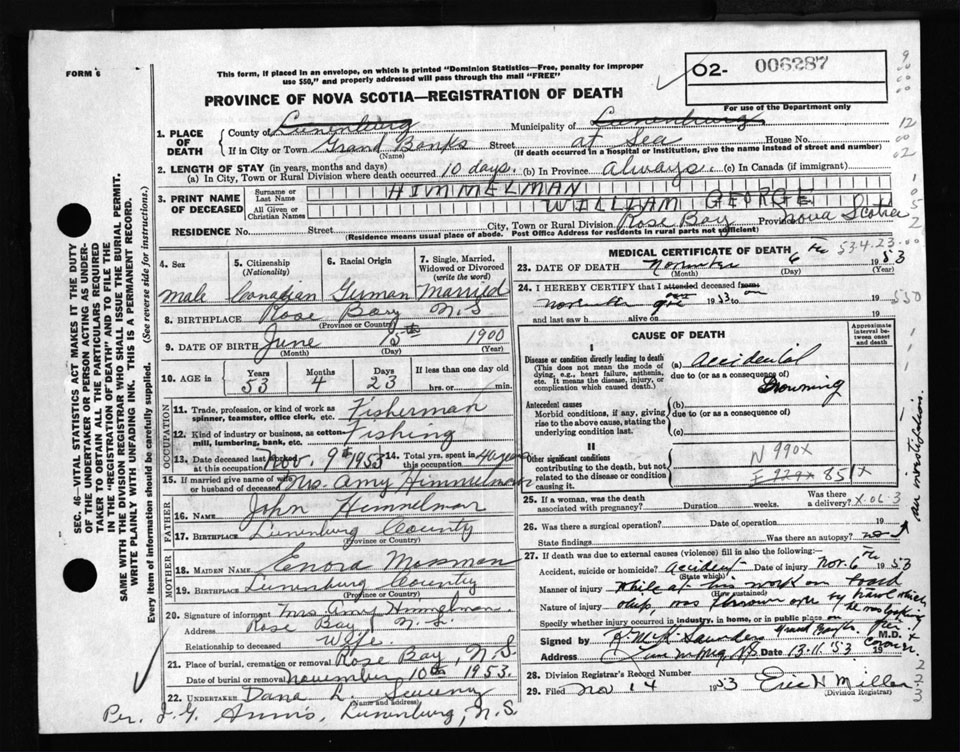 FORM 6
This form, if placed in an envelope, on which is printed "Dominion Statistics—Free, penalty for improper
use $50," and properly addressed will pass through the mail "FREE"
02- 006287
For use of the Department only
PROVINCE OF NOVA SCOTIA—REGISTRATION OF DEATH
1. PLACE OF DEATH
County of Lunenburg Municipality of Lunenburg
If in City or Town Grand Banks Street at Sea House No.
(Name) (If death occurred in a hospital or institution, give the name instead of street and number)
2. LENGTH OF STAY (in years, months and days)
(a) In City, Town or Rural Division where death occurred 10 days. (b) In Province always. (c) In Canada (if immigrant)
3. PRINT NAME OF DECEASED
Surname or Last Name HIMMELMAN
All Given or Christian Names WILLIAM GEORGE
RESIDENCE No. Street City, Town or Rural Division Rose Bay Province Nova Scotia
(Residence means usual place of abode. Post Office Address for residents in rural parts not sufficient)
4. Sex
5. Citizenship (Nationality)
6. Racial Origin
7. Single, Married, Widowed or Divorced (write the word)
male Canadian German Married
8. BIRTHPLACE Rose Bay N.S
(Province or Country)
9. DATE OF BIRTH June 1900
(Month) (Day) (Year)
10. AGE in Years Months Days If less than one day old
53 4 23 hrs. or min.
OCCUPATION
11. Trade, profession, or kind of work as spinner, teamster, office clerk, etc. Fisherman
12. Kind of industry or business, as cotton-mill, lumbering, bank, etc. Fishing
13. Date deceased last worked at this occupation Nov. 9th 1953
14. Total yrs. spent in this occupation 40 years
15. If married give name of wife or husband of deceased Mrs. Amy Himmelman
FATHER
16. NAME John Himmelman
17. BIRTHPLACE Lunenburg County
(Province or Country)
MOTHER
18. MAIDEN NAME Enora Mosman
19. BIRTHPLACE Lunenburg County
(Province or Country)
20. Signature of informant Mrs. Amy Himmelman.
Address Rose Bay N.S.
Relationship to deceased Wife
21. Place of burial, cremation or removal Rose Bay, N.S.
Date of burial or removal November 10th 1953.
22. UNDERTAKER Dana L. Sweeny
(Name and Address)
Per. J.G. Lunenburg, N.S.
MEDICAL CERTIFICATE OF DEATH
534.23
23. DATE OF DEATH November 6 th 1953
(Month) (Day) (Year)
24. I HEREBY CERTIFY that I attended deceased from on
november 1953 to 19
and last saw h alive on 19
550
CAUSE OF DEATH
Approximate interval between onset and death
I
Disease or condition directly leading to death
(This does not mean the mode of dying, e.g., heart failure, asthenia, etc. It means the disease, injury, or complication which caused death.)
(a) accidental
due to (or as a consequence of)
Drowning
Antecedent causes
Morbid conditions, if any, giving rise to the above cause, stating the underlying condition last.
(b)
due to (or as a consequence of)
(c)
II
Other significant conditions contributing to the death, but not related to the disease or condition causing it.
N 990X
E 929X 851X
25. If a woman, was the death associated with pregnancy? Duration weeks. Was there a delivery?
26. Was there a surgical operation? Date of operation 19
State findings Was there an autopsy? no
27. If death was due to external causes (violence) fill in also the following:—
Accident, suicide or homicide? accident Date of injury Nov. 6th 1953
(State which)
Manner of injury while at his work on board
(How sustained)
Nature of injury ship, was thrown over by trawl which
Specify whether injury occurred in industry, in home, or in public place on
Signed by Saunders M.D.
Address Date 13.11.53 19
28. Division Registrar's Record Number
29. Filed Nov 14 1953 Eric H Millar
(Division Registrar)
SEC. 46—VITAL STATISTICS ACT MAKES IT THE DUTY
OF THE UNDERTAKER OR PERSON ACTING AS UNDER-
TAKER TO OBTAIN ALL THE PARTICULARS REQUIRED
IN THE "REGISTRATION OF DEATH" AND TO FILE THE
SAME WITH THE DIVISION REGISTRAR WHO SHALL ISSUE THE BURIAL PERMIT.
WRITE PLAINLY WITH UNFADING INK. THIS IS A PERMANENT RECORD.
Every item of information should be carefully supplied. (See reverse side for instructions.)
an investigation.